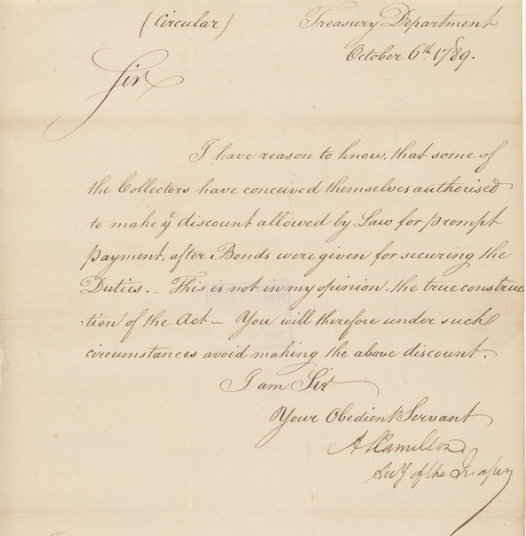 (Circular) Treasury Department
October 6th 1789.
Sir
I have reason to know, that some of
the Collectors have conceived themselves authorised
to make ye discount allowed by Law for prompt
payment, after Bonds were given for securing the
Duties. — This is not in my opinion, the true construc
-tion of the Act — You will therefore under such
circumstances avoid making the above discount.
I am Sir
Your Obedient Servant
A Hamilton
Secy of the Treasury